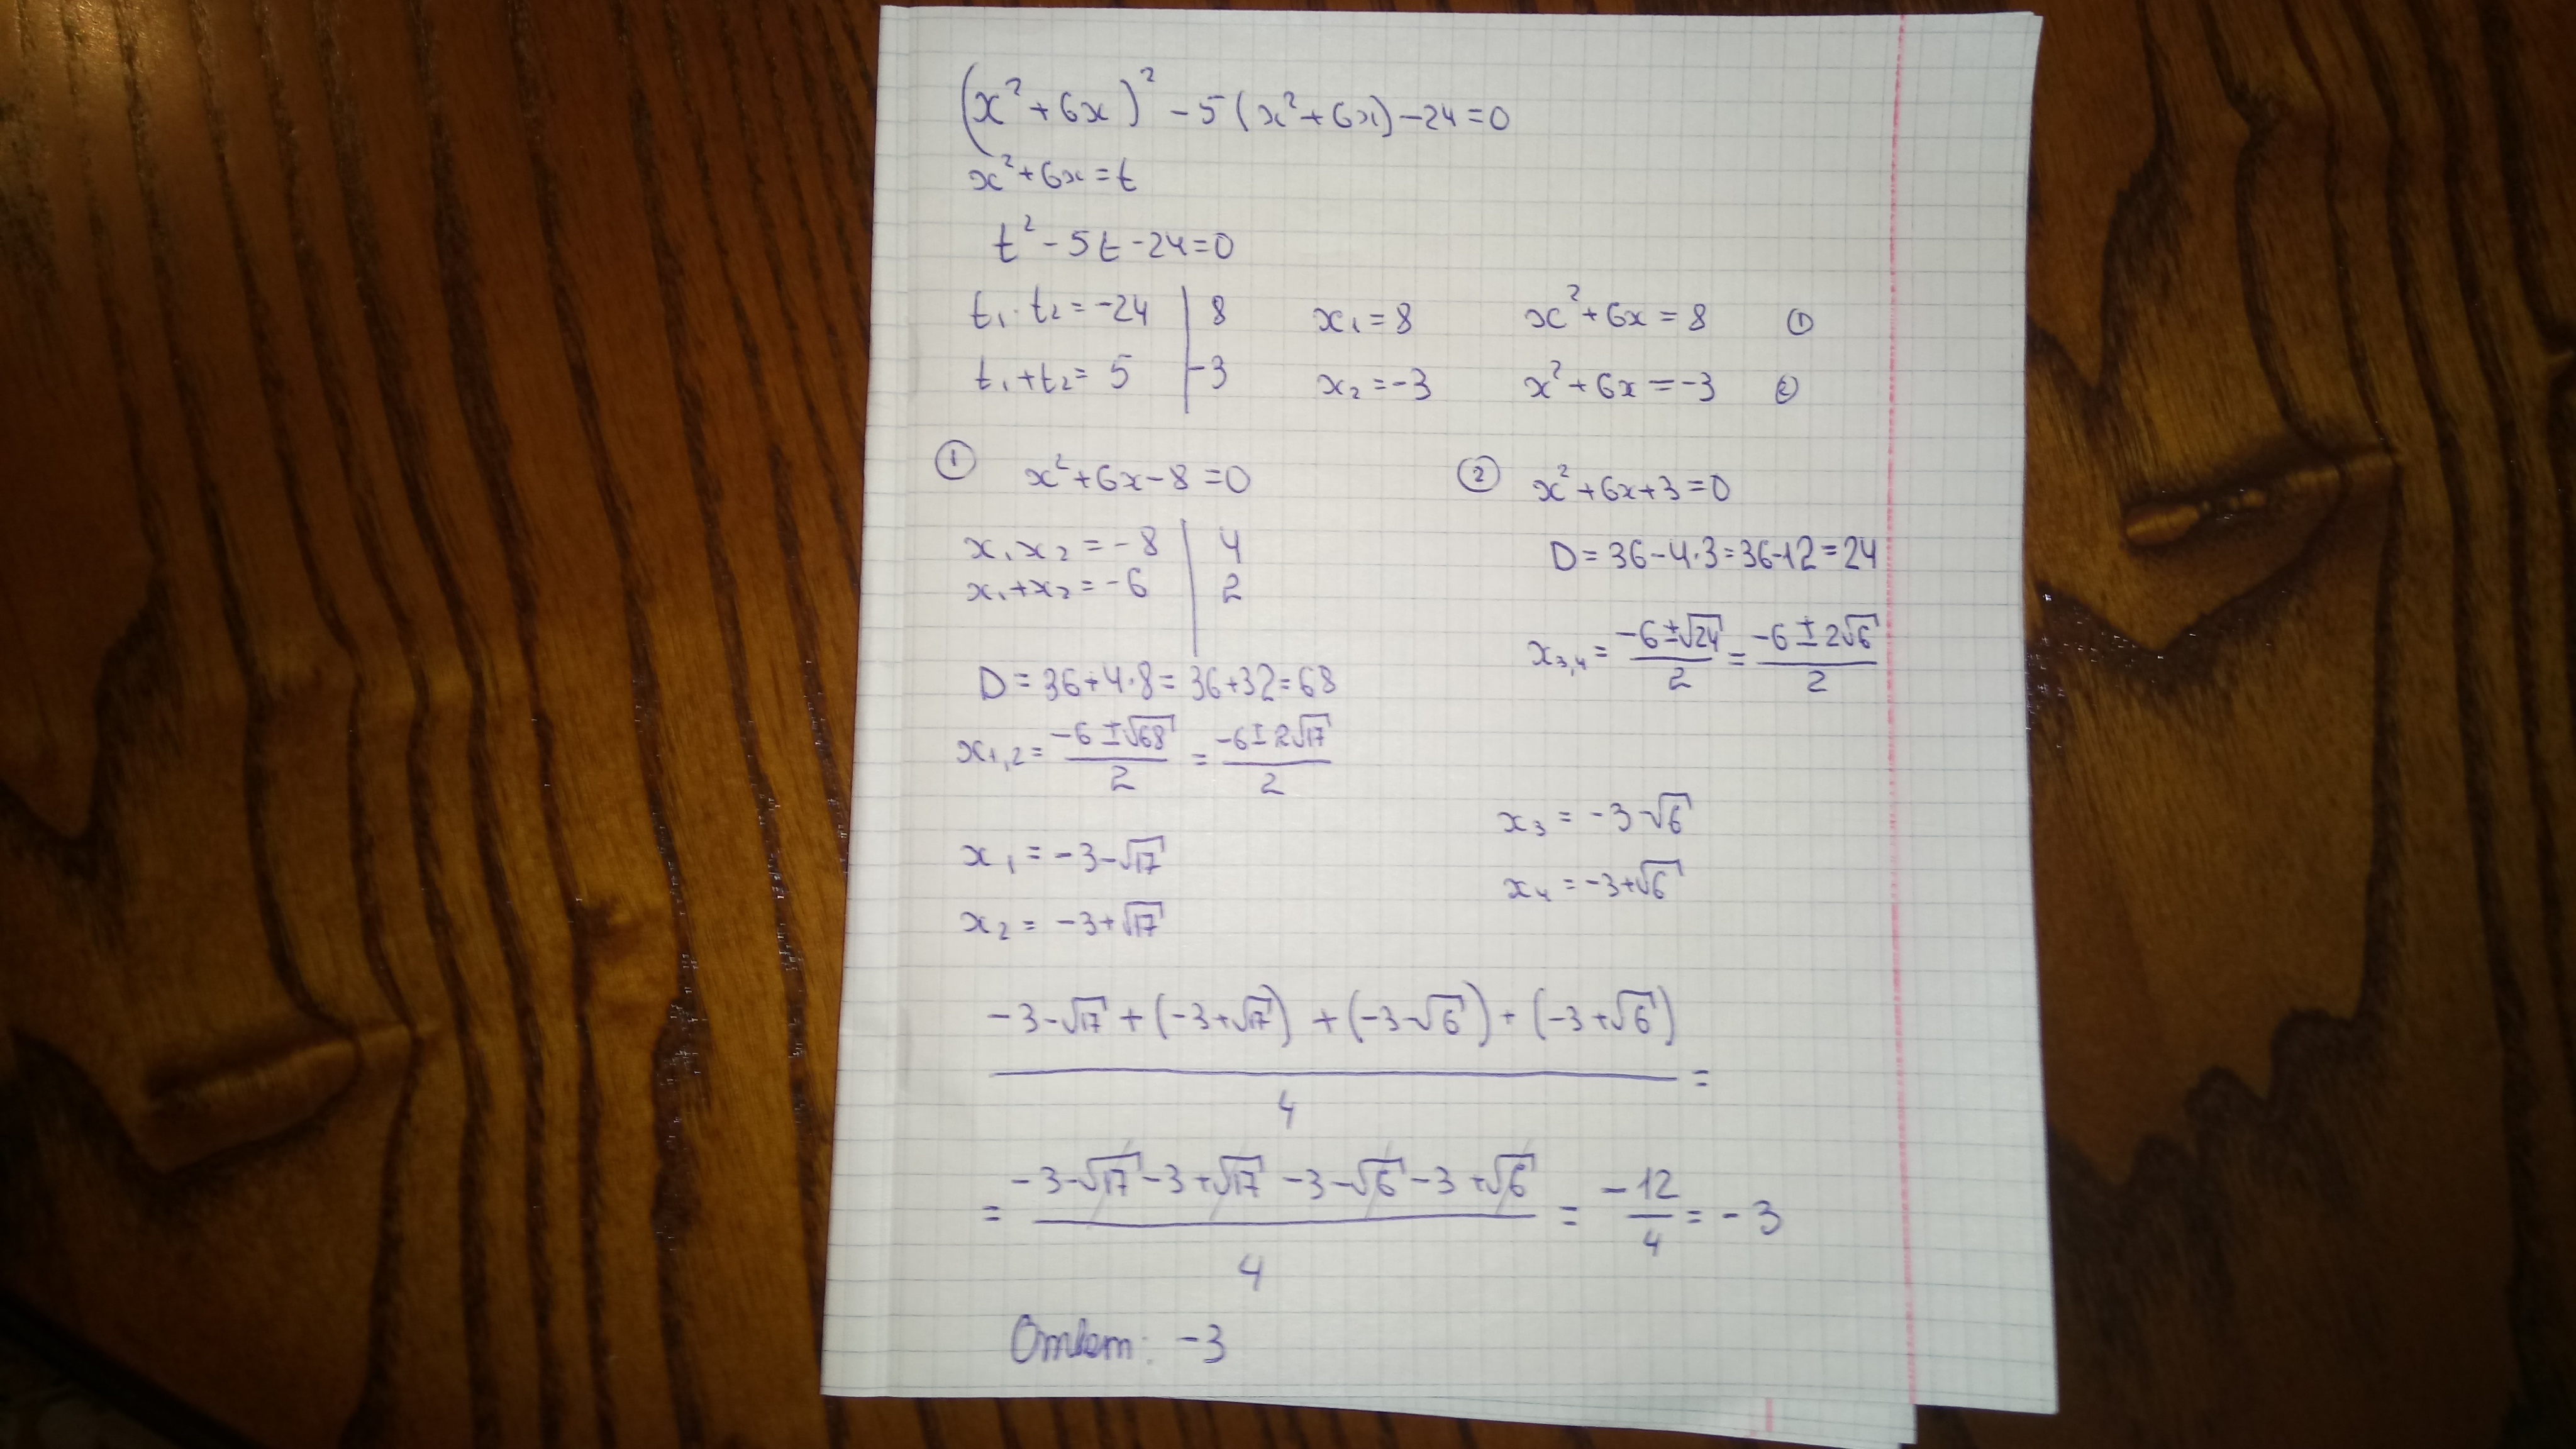 (x² + 6x)² - 5(x² + 6x) - 24 = 0
x² + 6x = t
t² - 5t - 24 = 0
t₁ · t₂ = -24 | 8 x₁ = 8 x² + 6x = 8 ①
t₁ + t₂ = 5 | -3 x₂ = -3 x² + 6x = -3 ②
① x² + 6x - 8 = 0
x₁x₂ = -8 | 4
x₁ + x₂ = -6 | 2
D = 36 + 4·8 = 36 + 32 = 68
x₁,₂ = (-6 ± √68)/2 = (-6 ± 2√17)/2
x₁ = -3 - √17
x₂ = -3 + √17
② x² + 6x + 3 = 0
D = 36 - 4·3 = 36 - 12 = 24
x₃,₄ = (-6 ± √24)/2 = (-6 ± 2√6)/2
x₃ = -3 - √6
x₄ = -3 + √6
(-3 - √17 + (-3 + √17) + (-3 - √6) + (-3 + √6))/4 =
= (-3 - √17 - 3 + √17 - 3 - √6 - 3 + √6)/4 = -12/4 = -3
Ответ: -3